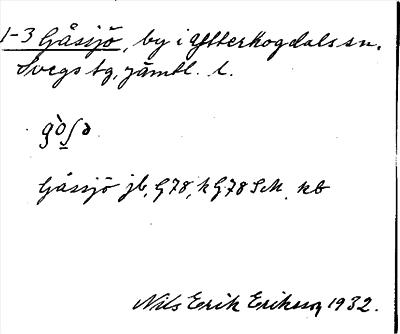 1-3 Gåssjö, by i Ytterhogdals sn.
Svegs tg, jämtl. l.
gò̱ʃə
Gåssjö jb, G78, h G78 SM, kb
Nils Erik Eriksson 1932.